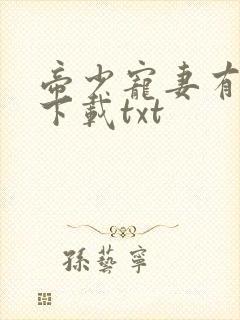 帝少寵妻有
下載txt
孫藝寧